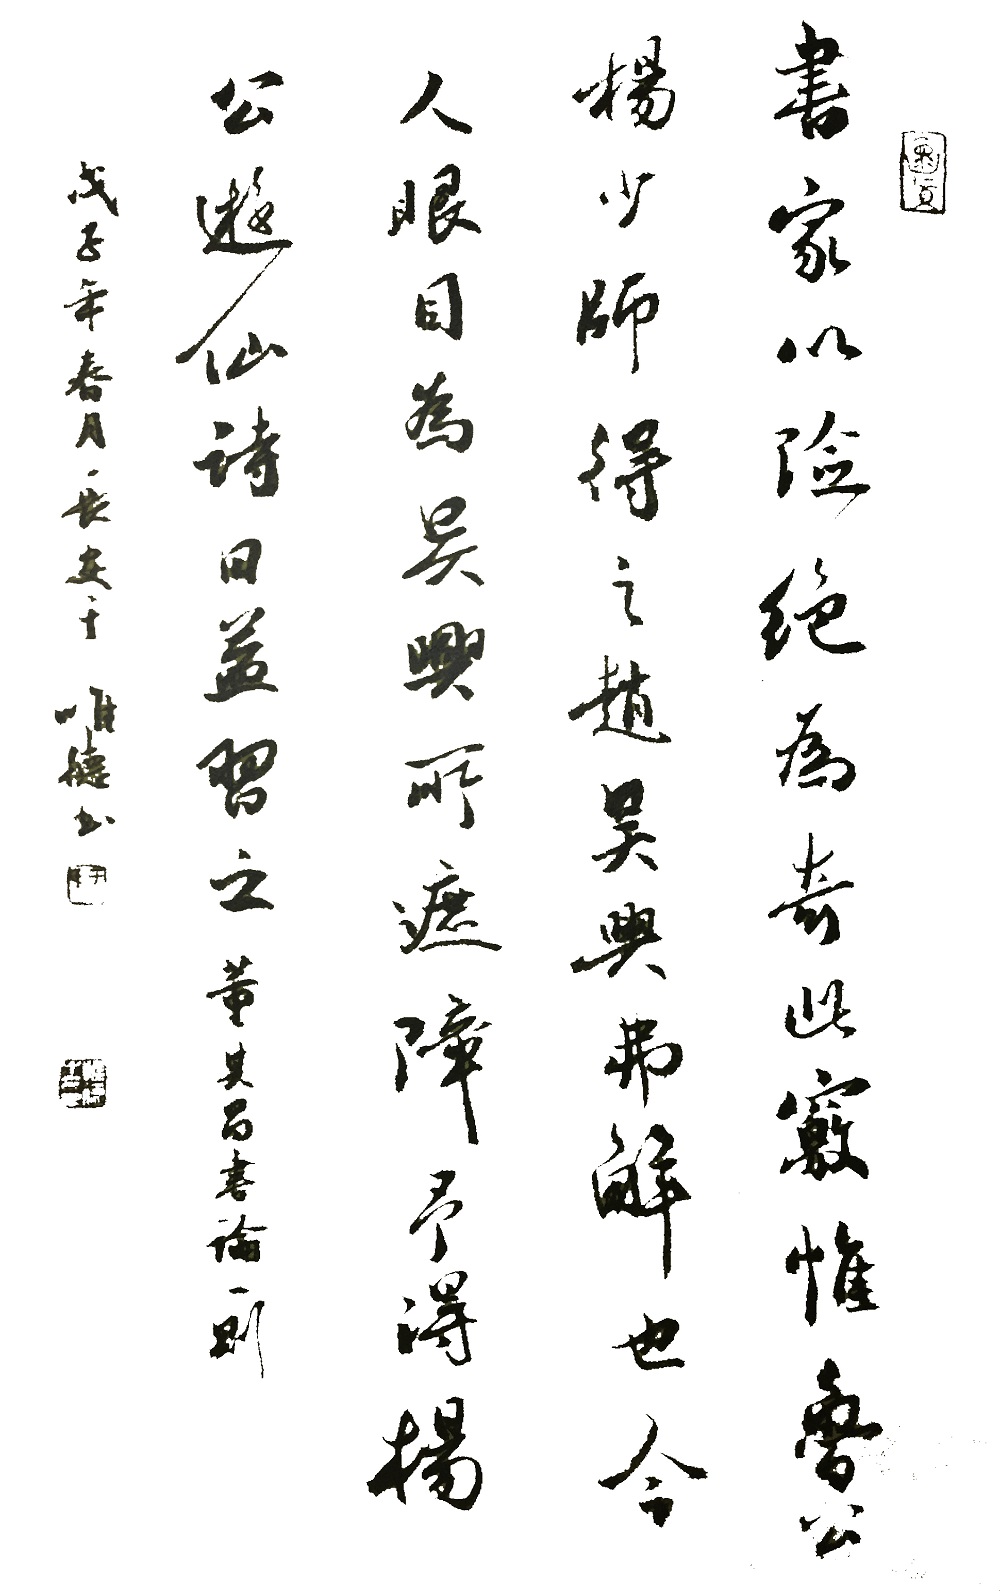 書家以险绝為奇此竅惟魯公
楊少師得之趙吴興弗解也今
人眼目為吴興所遮障予得楊
公遊仙詩日益習之董其昌書論一則
戊子年春月長安
唯德书